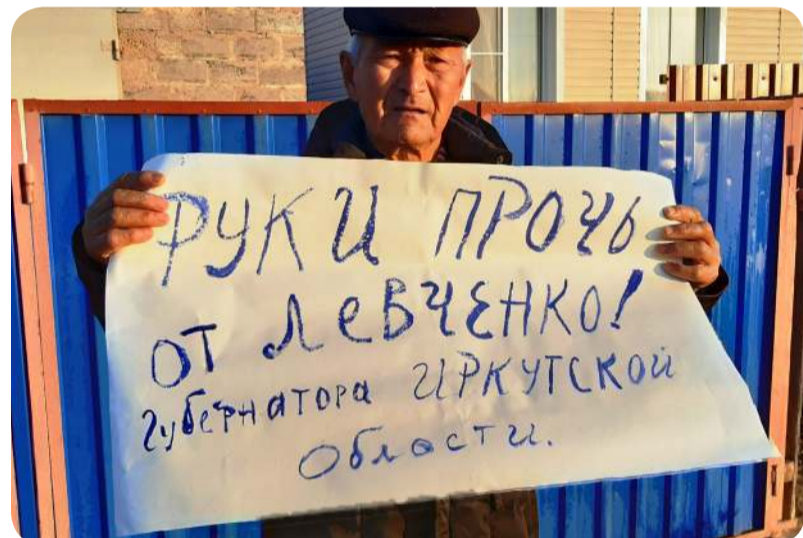 РУКИ ПРОЧЬ
ОТ ЛеВЧЕНКО!
губернАТОРа ИРКУТСКОЙ
Области.